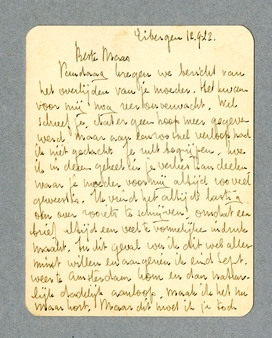 Eibergen 12.9.22.
Beste Maas
Vandaag kregen we bericht van
het overlijden van je moeder. Het kwam
voor mij nog vrij onverwacht. Wel
schreef je, dat er geen hoop meer gegeven
werd, maar aan een zoo snel verloop had
ik niet gedacht. Je zult begrijpen, hoe
ik in deze geheel in je verlies kan deelen
waar je moeder voor mij altijd zoo veel
geweest is. Ik vind het altijd lastig
om over zooiets te schrijven, omdat een
brief altijd een veel te vormelijke indruk
maakt. In dit geval zou ik dit wel allerminst
willen en aangezien ik eind Sept.
weer te Amsterdam kom en dan natuurlijk
dadelijk aanloop, maak ik het nu
maar kort. Maar dit moet ik je toch